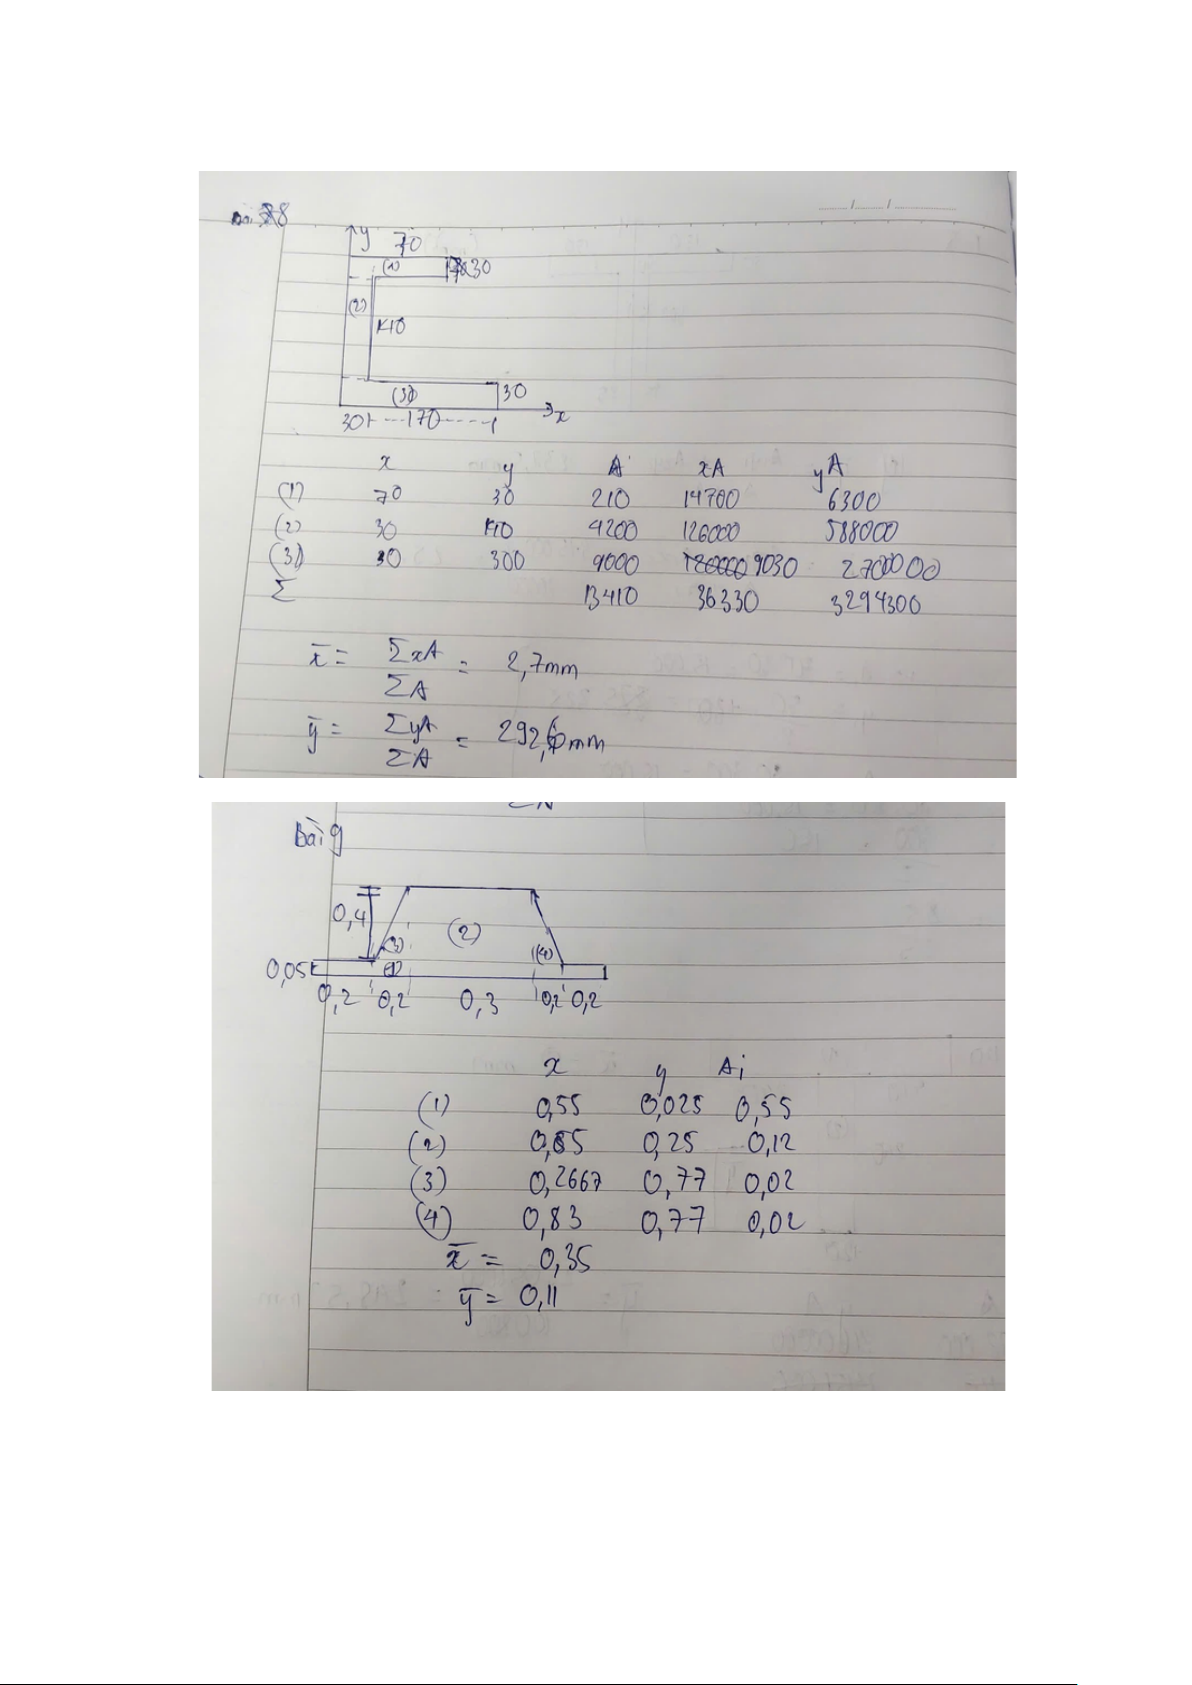 y
70
(1) 30
(2)
140
(3) 30
x
30 170
x y A xA yA
(1) 70 30 210 14700 6300
(2) 30 140 4200 126000 588000
(3) 30 300 9000 9030 2700000
Σ 13410 36330 3294300
x̄ = ΣxA / ΣA = 2,7mm
ȳ = ΣyA / ΣA = 292,6mm
Bài 9
0,4 (3) (2) (4)
0,05 (1)
0,2 0,2 0,3 0,2 0,2
x y Ai
(1) 0,55 0,025 0,55
(2) 0,55 0,25 0,12
(3) 0,2667 0,77 0,02
(4) 0,83 0,77 0,02
x̄ = 0,35
ȳ = 0,11